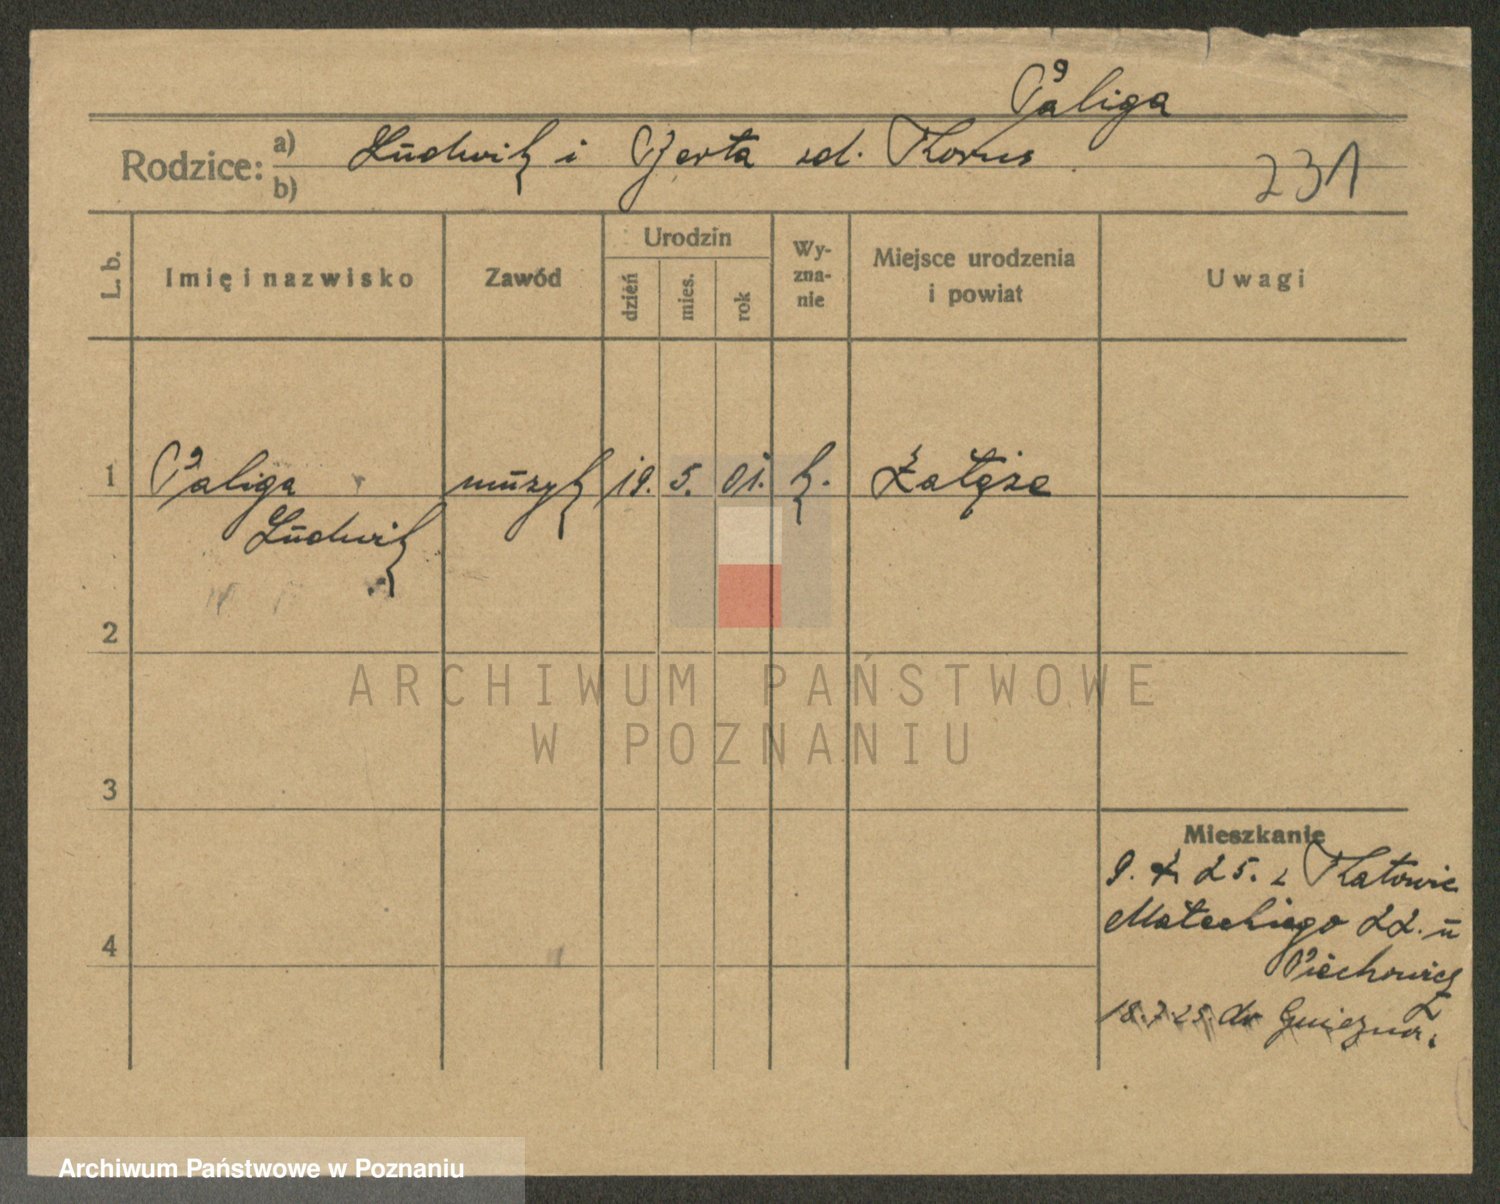 Paliga
Rodzice: a) Ludwik i Berta zd. Korus
b)
231
L. b. Imię i nazwisko Zawód Urodzin dzień mies. rok Wyznanie Miejsce urodzenia i powiat Uwagi
1 Paliga muzyk 19. 5. 01. k. Załęże
Ludwik
2
ARCHIWUM PAŃSTWOWE
W POZNANIU
3
Mieszkanie
9. 25. z Katowic
Małeckiego 22. u
4
Piechowicz
18.7.25. do Gniezna.
Archiwum Państwowe w Poznaniu